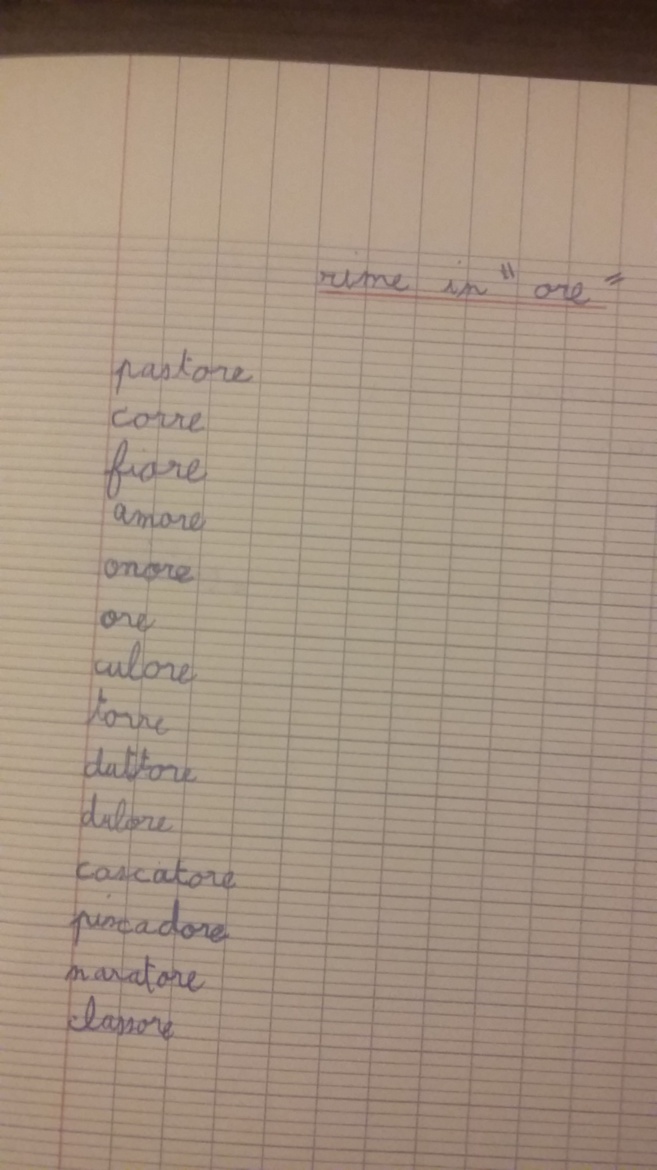 rime in " ore "
pastore
corre
fiore
amore
onore
ore
culore
torre
duttore
dulore
cascatore
piscadore
naratore
classore